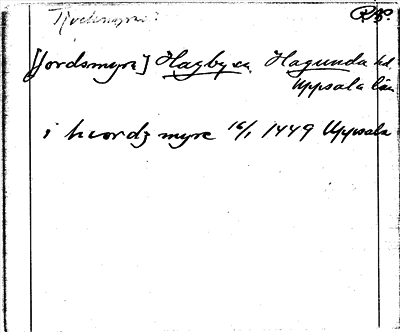 [Jordsmyre] Hagby sn Hagunda hd.
Uppsala län
i hwordz myre 16/1 1449 Uppsala